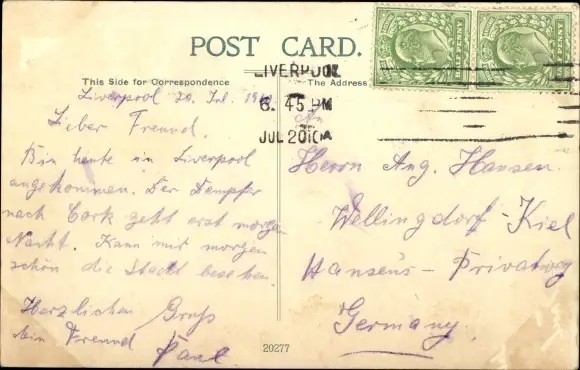 POST CARD.
This Side for Correspondence
The Address
HALFPENNY
HALFPENNY
LIVERPOOL
6. 45 PM
JUL 20 10
Liverpool 20. Jul. 1910
Lieber Freund.
Bin heute in Liverpool
angekommen. Der Dampfer
nach Cork geht erst morgen
Nacht. Kann mir morgen
schön die Stadt besehen.
Herzlichen Gruß
dein Freund Paul
An
Herrn Aug. Hansen.
Wellingdorf-Kiel
Hansens- Privatweg
Germany.
20277